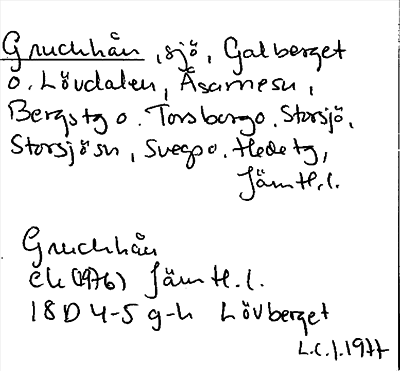 Gruckhån, sjö, Galberget
o. Lövdalen, Åsarnesn,
Bergstg o. Torsborgo. Storsjö,
Storsjösn, Svegpo. Hedetg,
Jämtl.l.
Gruckhån
Ek (1976) Jämtl.l.
18D 4-5 g-h Lövberget
L.C.J. 1977